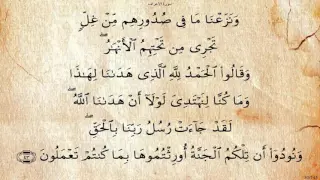 سورة الأعراف
وَنَزَعْنَا مَا فِى صُدُورِهِم مِّنْ غِلٍّ
تَجْرِى مِن تَحْتِهِمُ ٱلْأَنْهَٰرُ ۖ
وَقَالُوا۟ ٱلْحَمْدُ لِلَّهِ ٱلَّذِى هَدَىٰنَا لِهَٰذَا
وَمَا كُنَّا لِنَهْتَدِىَ لَوْلَآ أَنْ هَدَىٰنَا ٱللَّهُ ۖ
لَقَدْ جَآءَتْ رُسُلُ رَبِّنَا بِٱلْحَقِّ ۖ
وَنُودُوٓا۟ أَن تِلْكُمُ ٱلْجَنَّةُ أُورِثْتُمُوهَا بِمَا كُنتُمْ تَعْمَلُونَ ٤٣